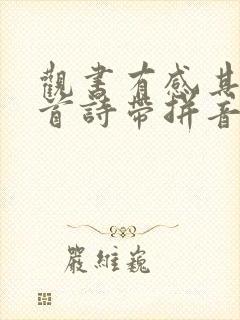 觀書有感其
首詩帶拼音
嚴維巍